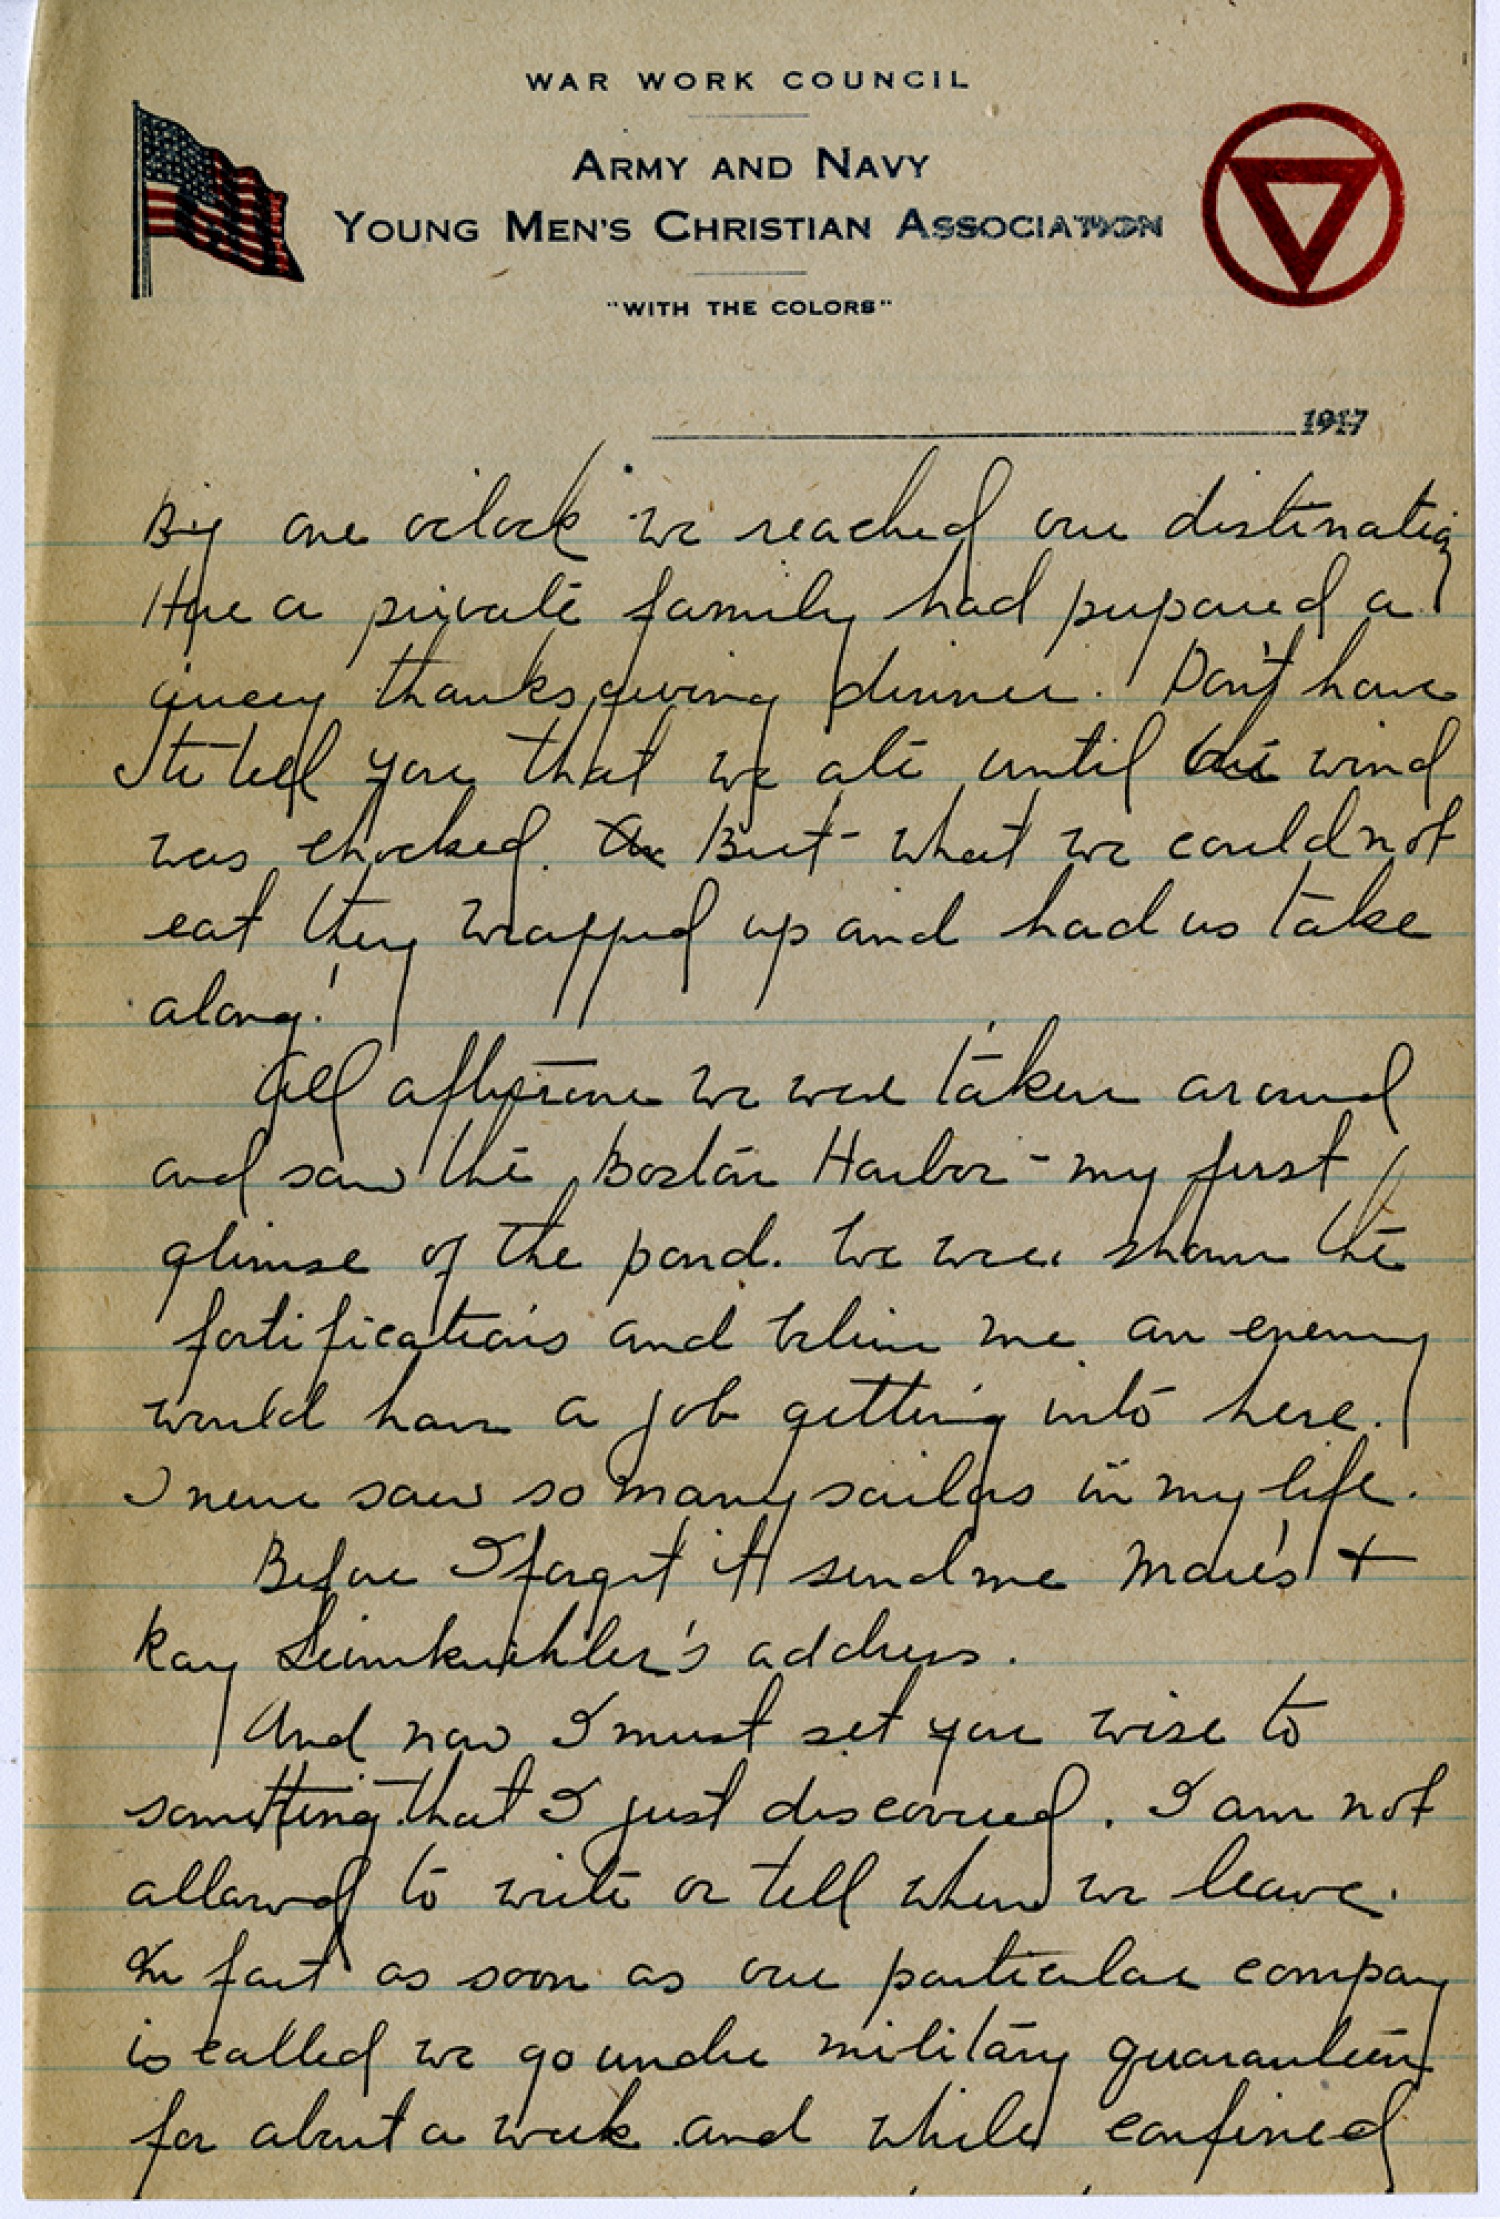 WAR WORK COUNCIL
ARMY AND NAVY
YOUNG MEN'S CHRISTIAN ASSOCIATION
"WITH THE COLORS"
1917
By one o'clock we reached our distination
Here a private family had prepared a
thanksgiving dinner. Don't have
to tell you that we ate until wind
was chocked. But what we could not
eat they wrapped up and had us take
along!
All afternoone we were taken around
and saw the Boston Harbor - my first
glimse of the pond. We were shown the
fortifications and belive me an enemy
would have a job getting into here.
I never saw so many sailors in my life.
Before I forget it send me Marie's +
Ray address.
And now I must set you wise to
something that I just discovered. I am not
allowed to write or tell when we leave.
In fact as soon as our particular company
is called we go under military quaranteen
for about a week and while confined